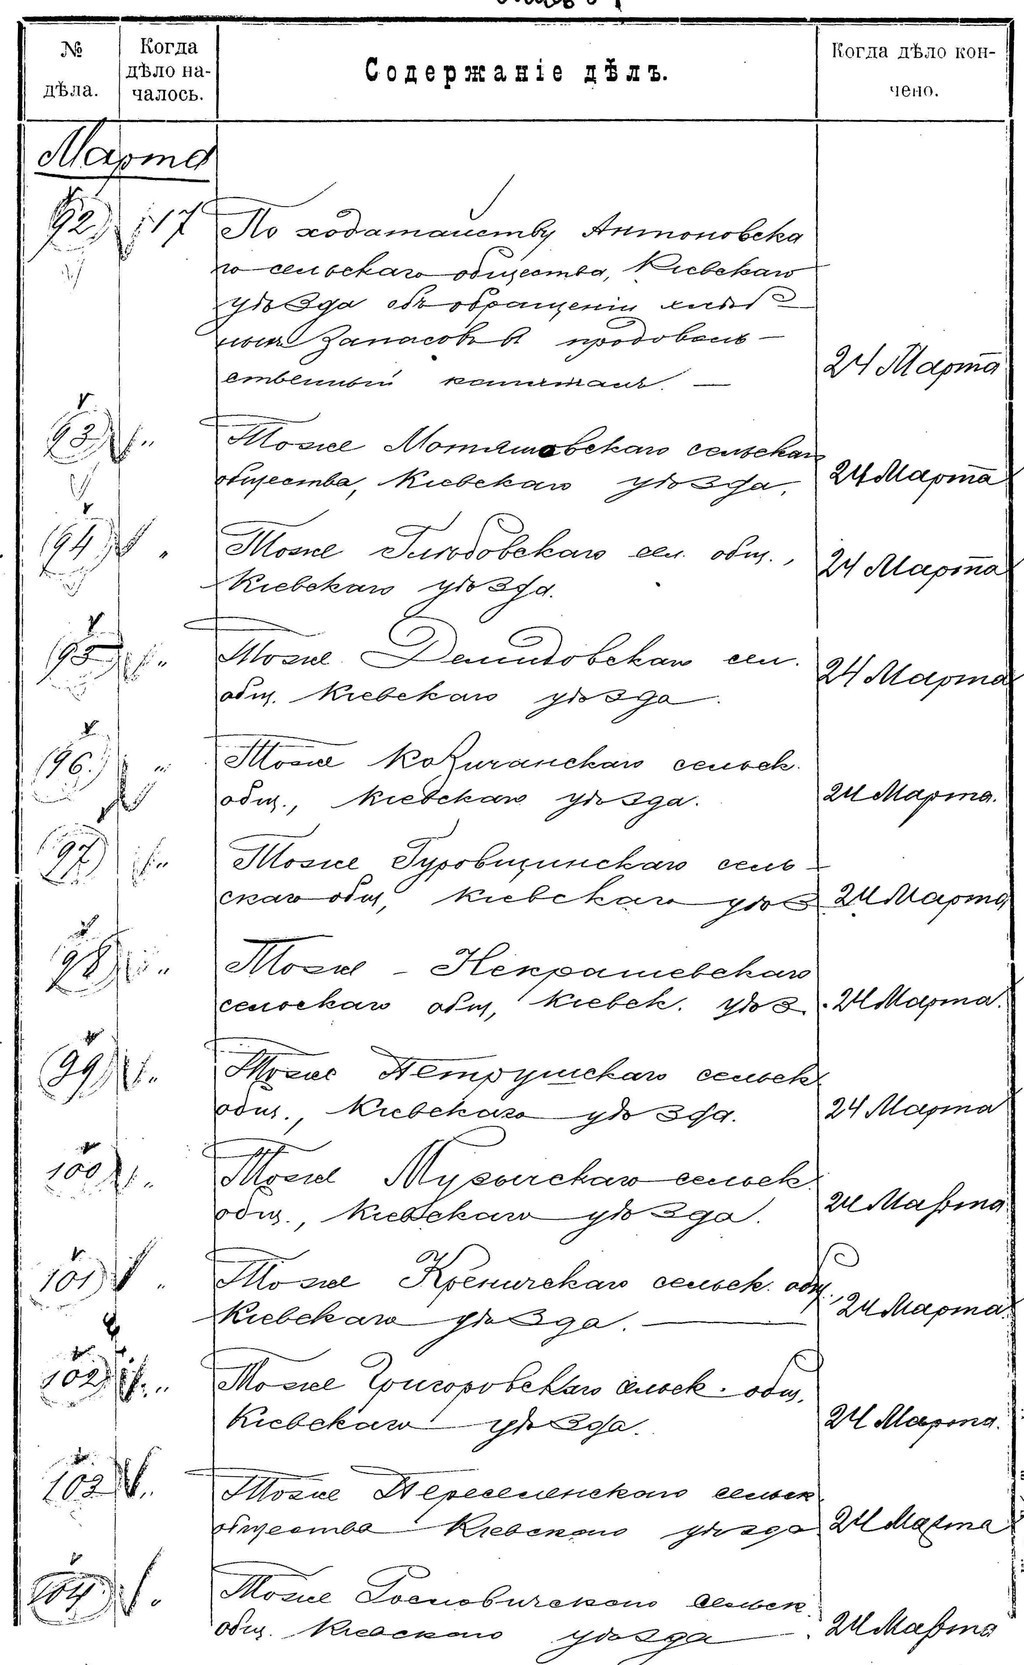 № дѣла.
Когда дѣло на-
чалось.
Содержаніе дѣлъ.
Когда дѣло кон-
чено.
Марта
92 17 По ходатайству Антоновска
го сельскаго общества, Кіевскаго
уѣзда объ обращеніи хлѣб
ныхъ запасовъ въ продоволь-
ственный капиталъ. — 24 Марта
93 " Тоже Мотяшовскаго сельскаго
общества, Кіевскаго уѣзда. 24 Марта
94 " Тоже Глѣбовскаго сел. общ.,
Кіевскаго уѣзда. 24 Марта
95 " Тоже Демидовскаго сел.
общ. Кіевскаго уѣзда. 24 Марта
96 " Тоже Козичанскаго сельск.
общ., Кіевскаго уѣзда. 24 Марта.
97 " Тоже Гуровщинскаго сель-
скаго общ, Кіевскаго уѣз 24 Марта
98 " Тоже - Некрашевскаго
сельскаго общ, Кіевск. уѣз. 24 Марта.
99 " Тоже Петрушскаго сельск
общ., Кіевскаго уѣзда. 24 Марта
100 " Тоже Музычскаго сельск.
общ., Кіевскаго уѣзда. 24 Марта
101 " Тоже Кренычскаго сельск. общ.,
Кіевскаго уѣзда. — 24 Марта
102 " Тоже Григоровскаго сельск. общ.
Кіевскаго уѣзда. 24 Марта.
103 " Тоже Переселенскаго сельск
общества Кіевскаго уѣзда 24 Марта
104 " Тоже Госновичскаго сельск.
общ. Кіевскаго уѣзда. 24 Марта